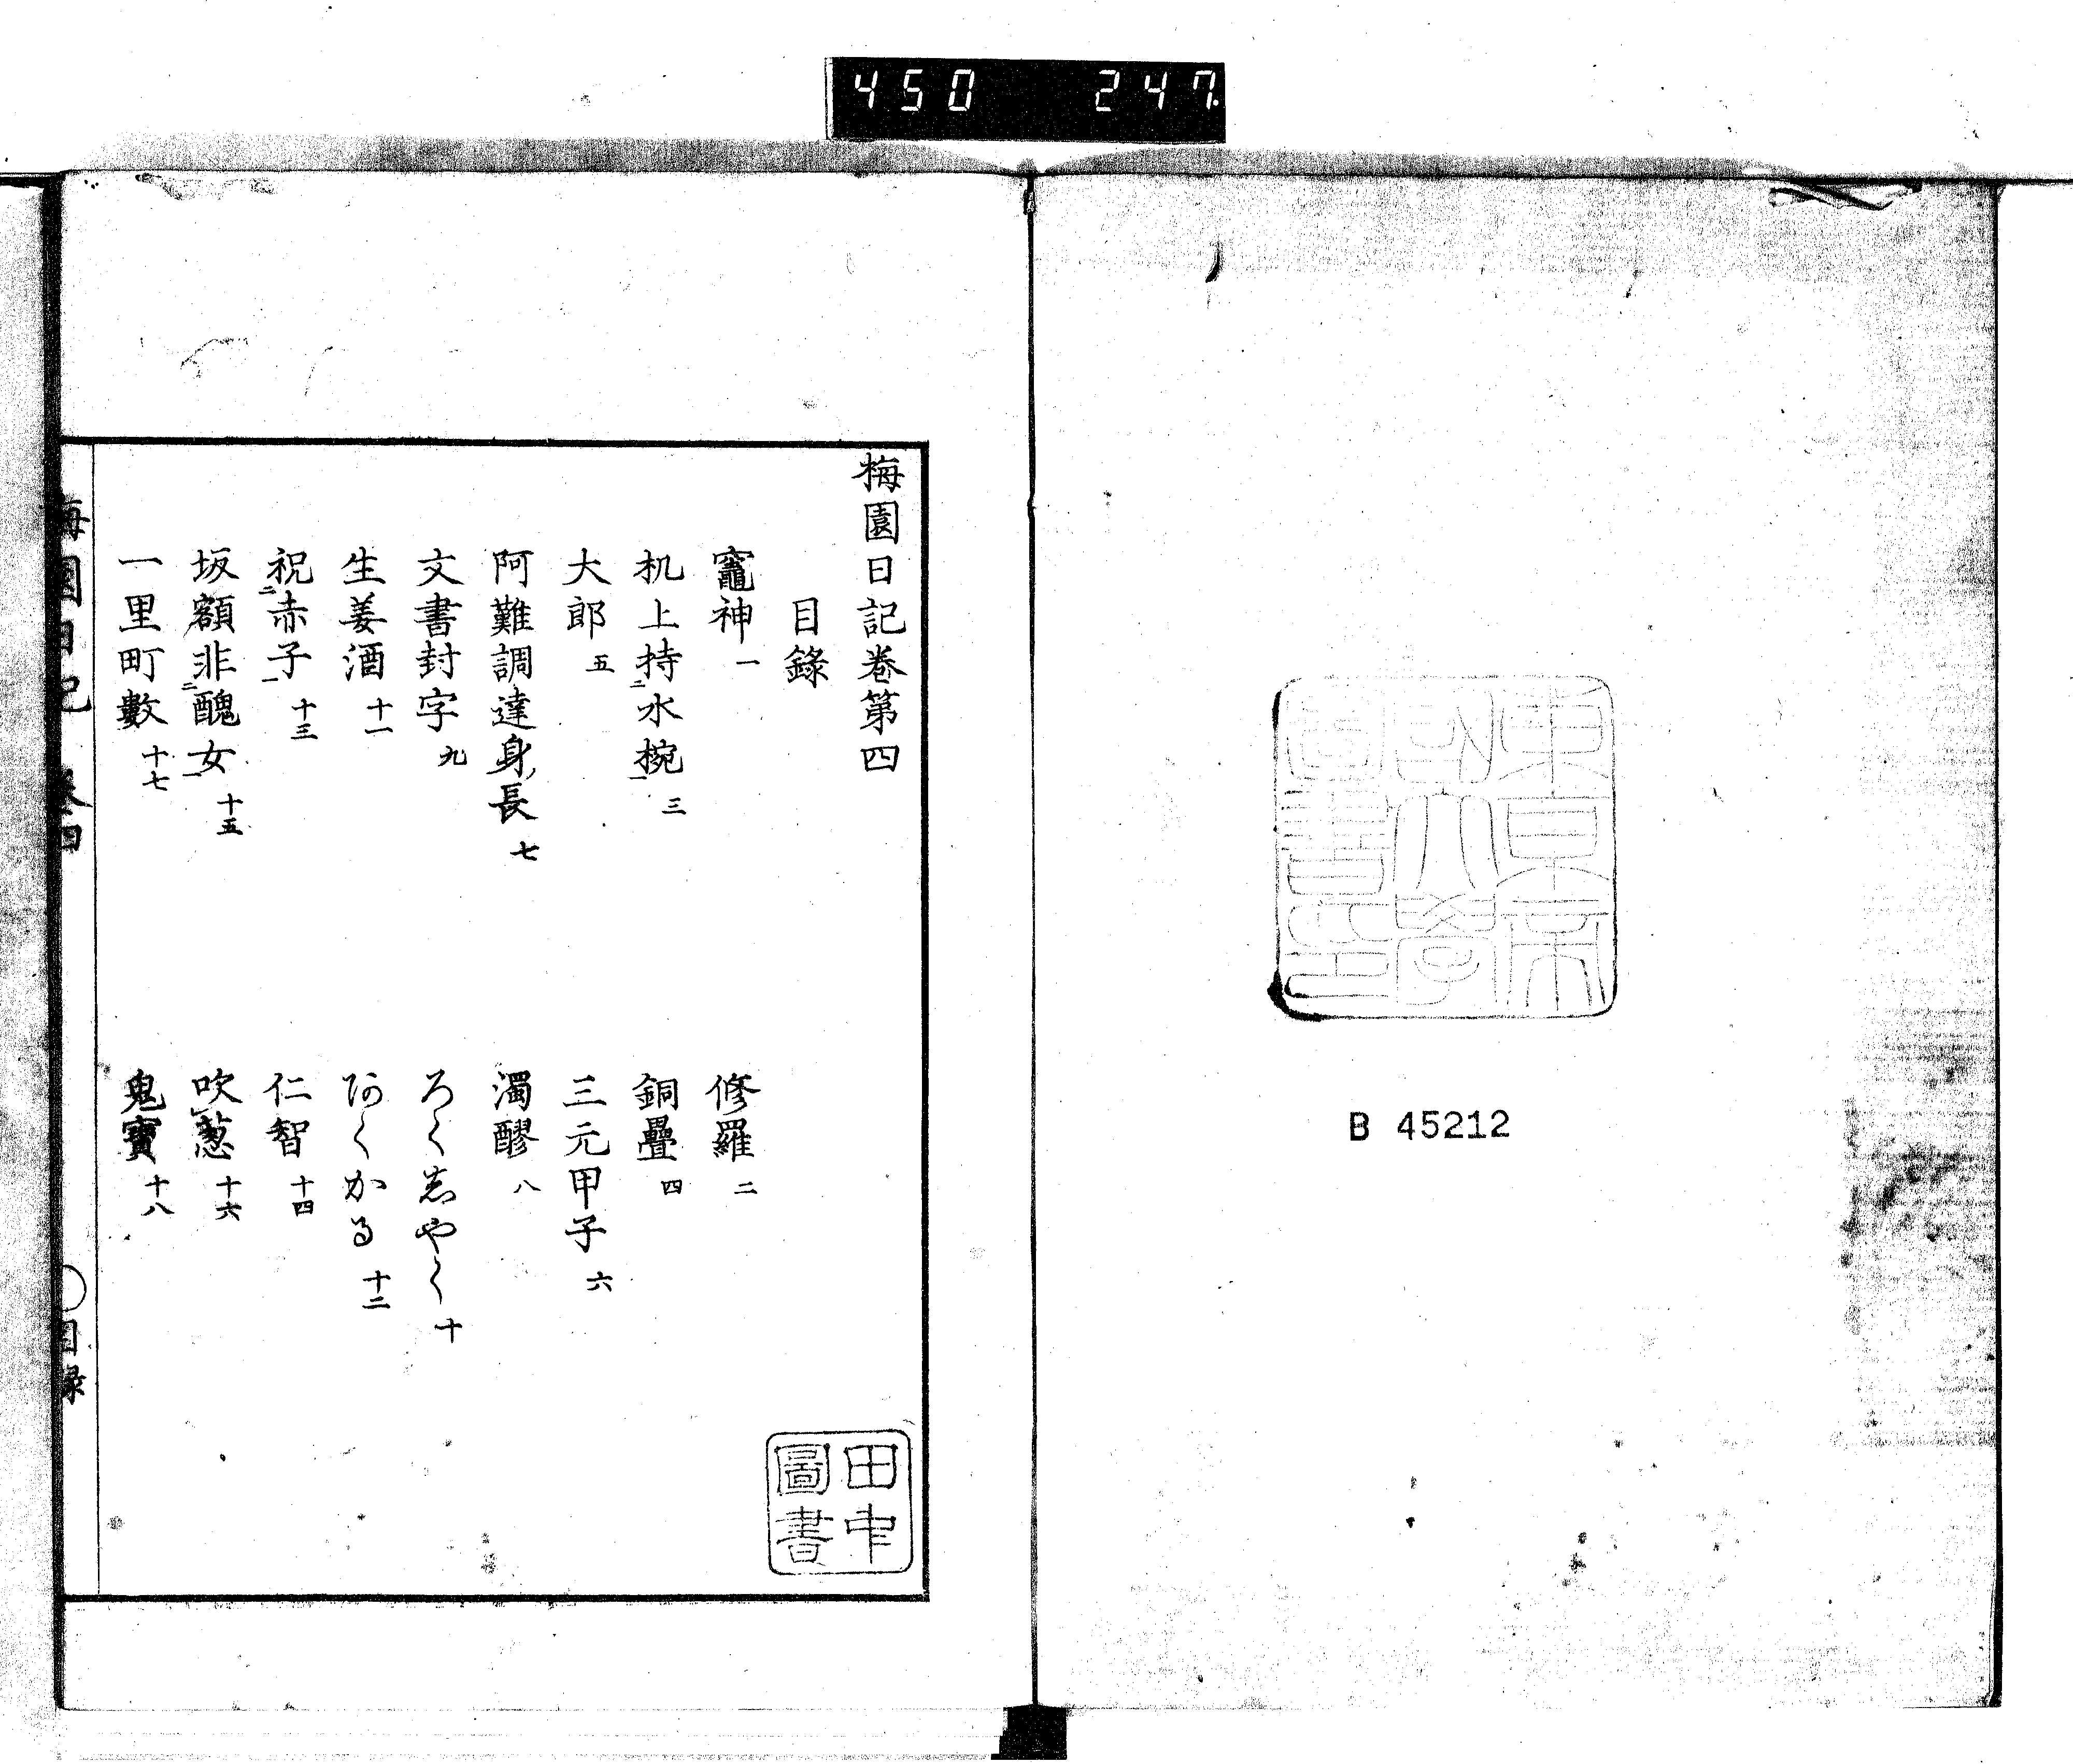 450 247
東京帝
國大學
圖書印
B 45212
梅園日記卷第四
目錄
竈神 一
修羅 二
机上持二水椀一 三
銅疊 四
大郎 五
三元甲子 六
阿難調達身長 七
濁醪 八
文書封字 九
ろく志やく 十
生姜酒 十一
かる 十二
祝二赤子一 十三
仁智 十四
坂額非二醜女一 十五
吹葱 十六
一里町數 十七
鬼寶 十八
梅園日記 卷四 目錄
田中
圖書